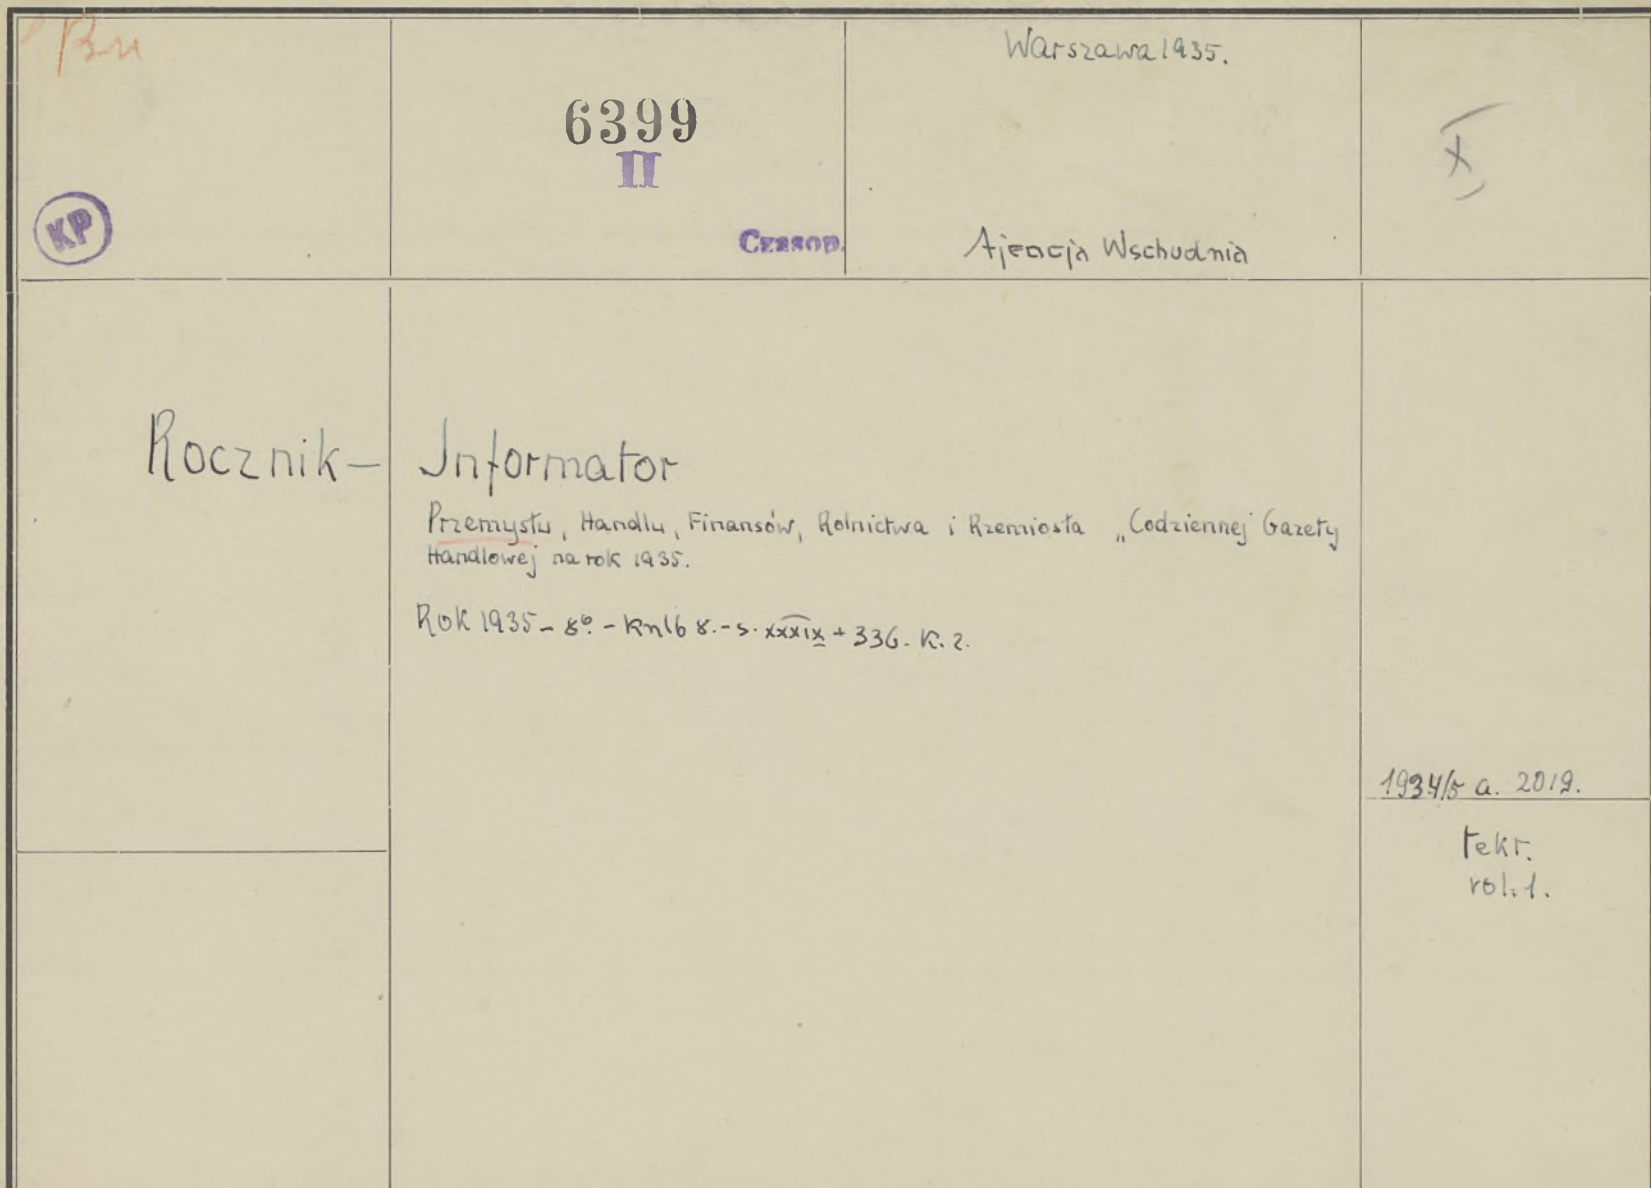 Bn
6399
II
KP
Czasop.
Warszawa 1935.
Ajencja Wschodnia
X
Rocznik - Informator
Przemysłu, Handlu, Finansów, Rolnictwa i Rzemiosła „Codziennej Gazety
Handlowej na rok 1935.
Rok 1935 - 8º. - knlb 8. - s. XXXIX + 336. K. 2.
1934/5 a. 2019.
rol. 1.